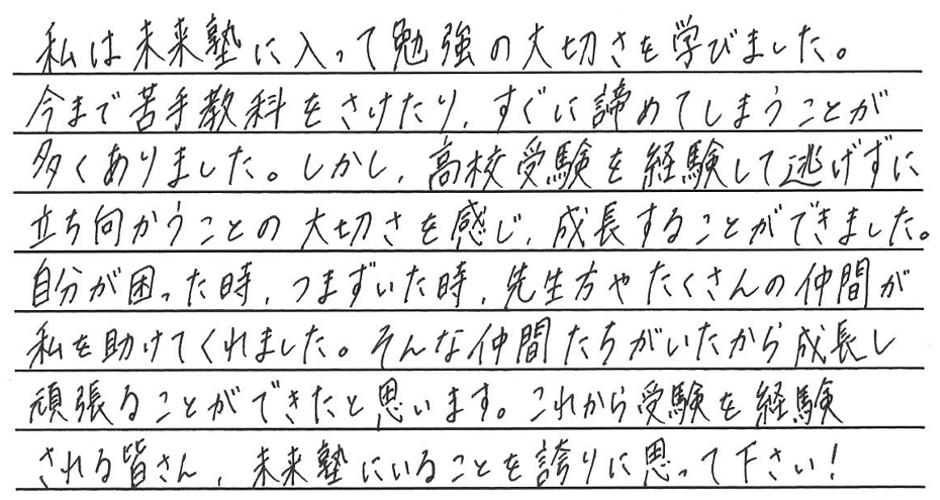 私は未来塾に入って勉強の大切さを学びました。
今まで苦手教科をさけたり、すぐに諦めてしまうことが
多くありました。しかし、高校受験を経験して逃げずに
立ち向かうことの大切さを感じ、成長することができました。
自分が困った時、つまずいた時、先生方やたくさんの仲間が
私を助けてくれました。そんな仲間たちがいたから成長し
頑張ることができたと思います。これから受験を経験
される皆さん、未来塾にいることを誇りに思って下さい!